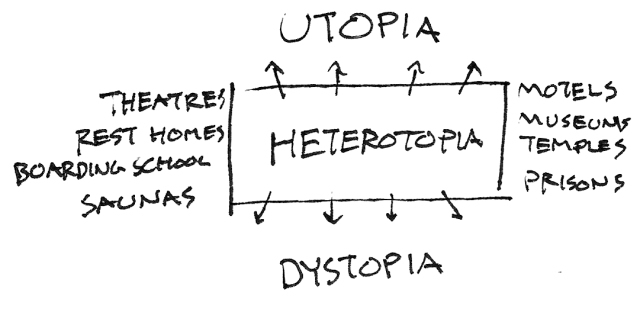 UTOPIA
THEATRES
REST HOMES
BOARDING SCHOOL
SAUNAS
HETEROTOPIA
MOTELS
MUSEUMS
TEMPLES
PRISONS
DYSTOPIA